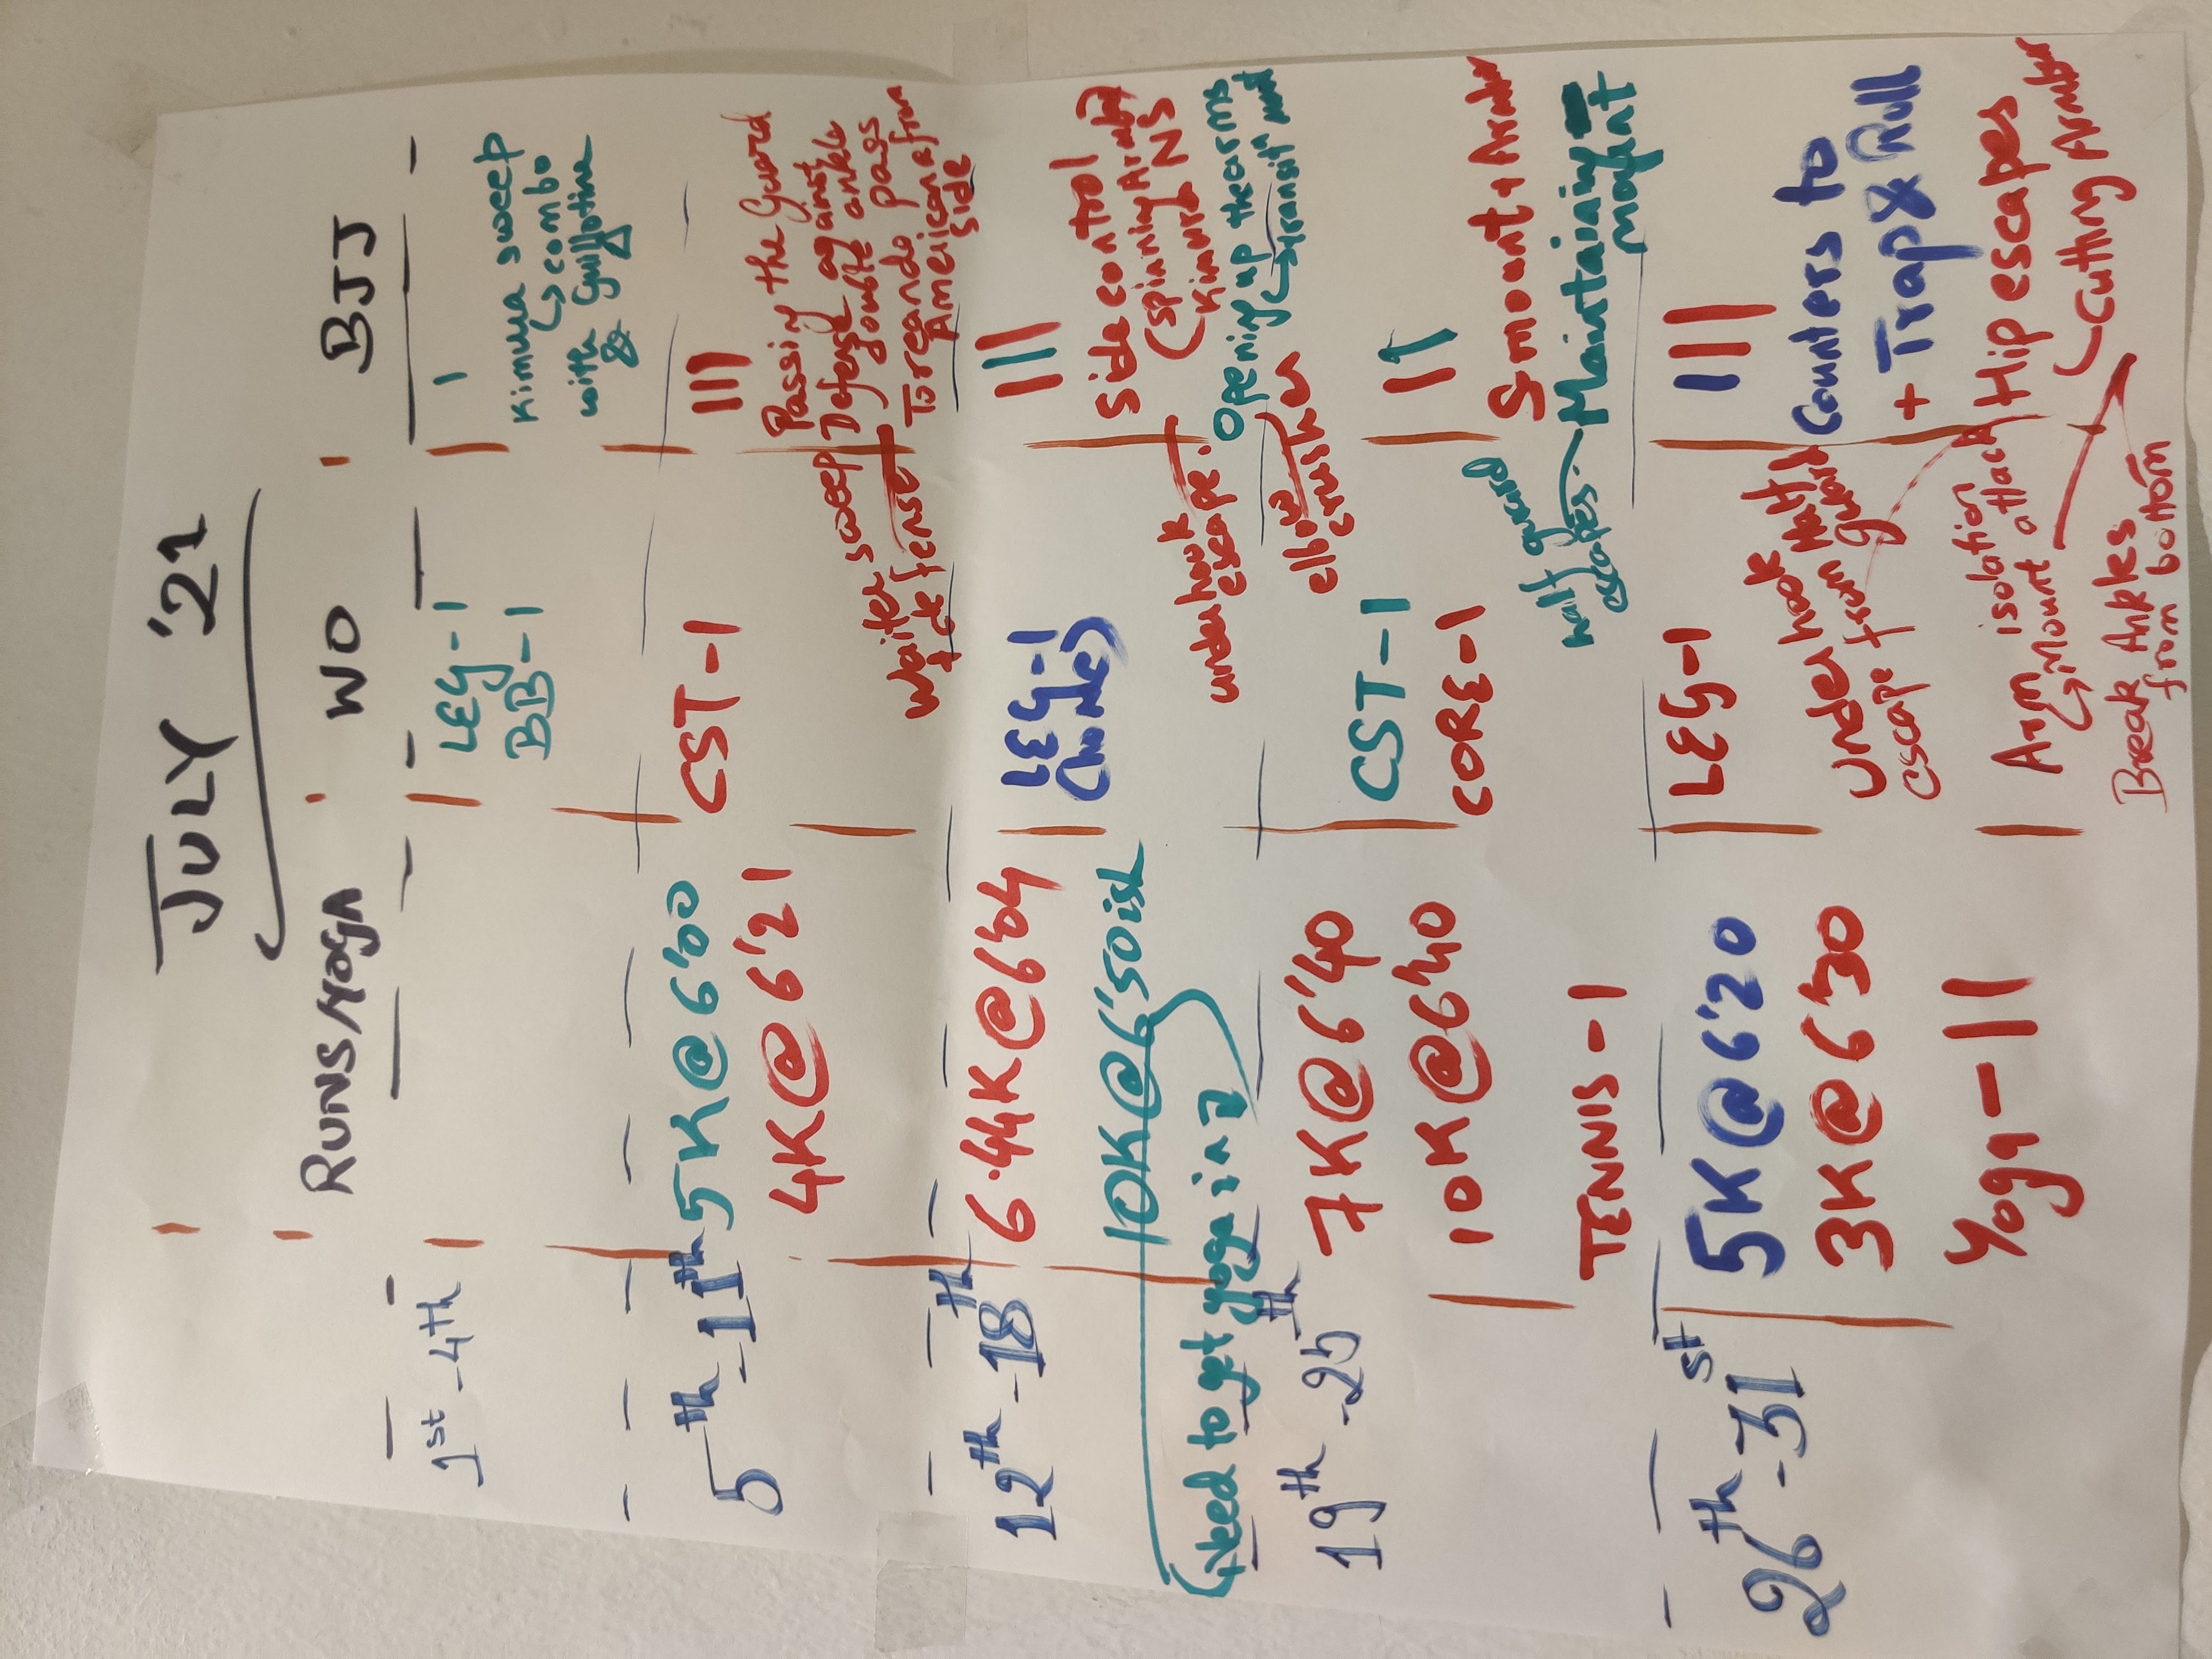 JULY '21
RUNS/YOGA WO BJJ
1st - 4th
LEG-1
BB-1
1
Kimura sweep
combo
with Guillotine
&
5th - 11th
5K@6'00
4K@6'21
CST-1
III
Passing the Guard
Defense against
double ankle
Toreando pass
Americana from
side
Waiter sweep
+ de fense
12th - 18th
6.44K@6'04
10K@6'50ish
(Need to get yoga in
LEG-1
III
Side control
(spinning Armbar
Kimura NS
Opening up the arms
transit
under hook
escape.
elbow
crush
19th - 25th
7K@6'40
10K@6'40
TENNIS-1
CST-1
CORE-1
II
S mount + Armbar
Maintaining
mount
half guard
escapes.
26th - 31st
5K@6'20
3K@6'30
Yoga - II
LEG-1
III
Counters to
+ Trap & Roll
Hip escapes
Cutting Armbar
Under hook
escape from Half
guard
Arm isolation
Mount attack
Break Ankles
from bottom